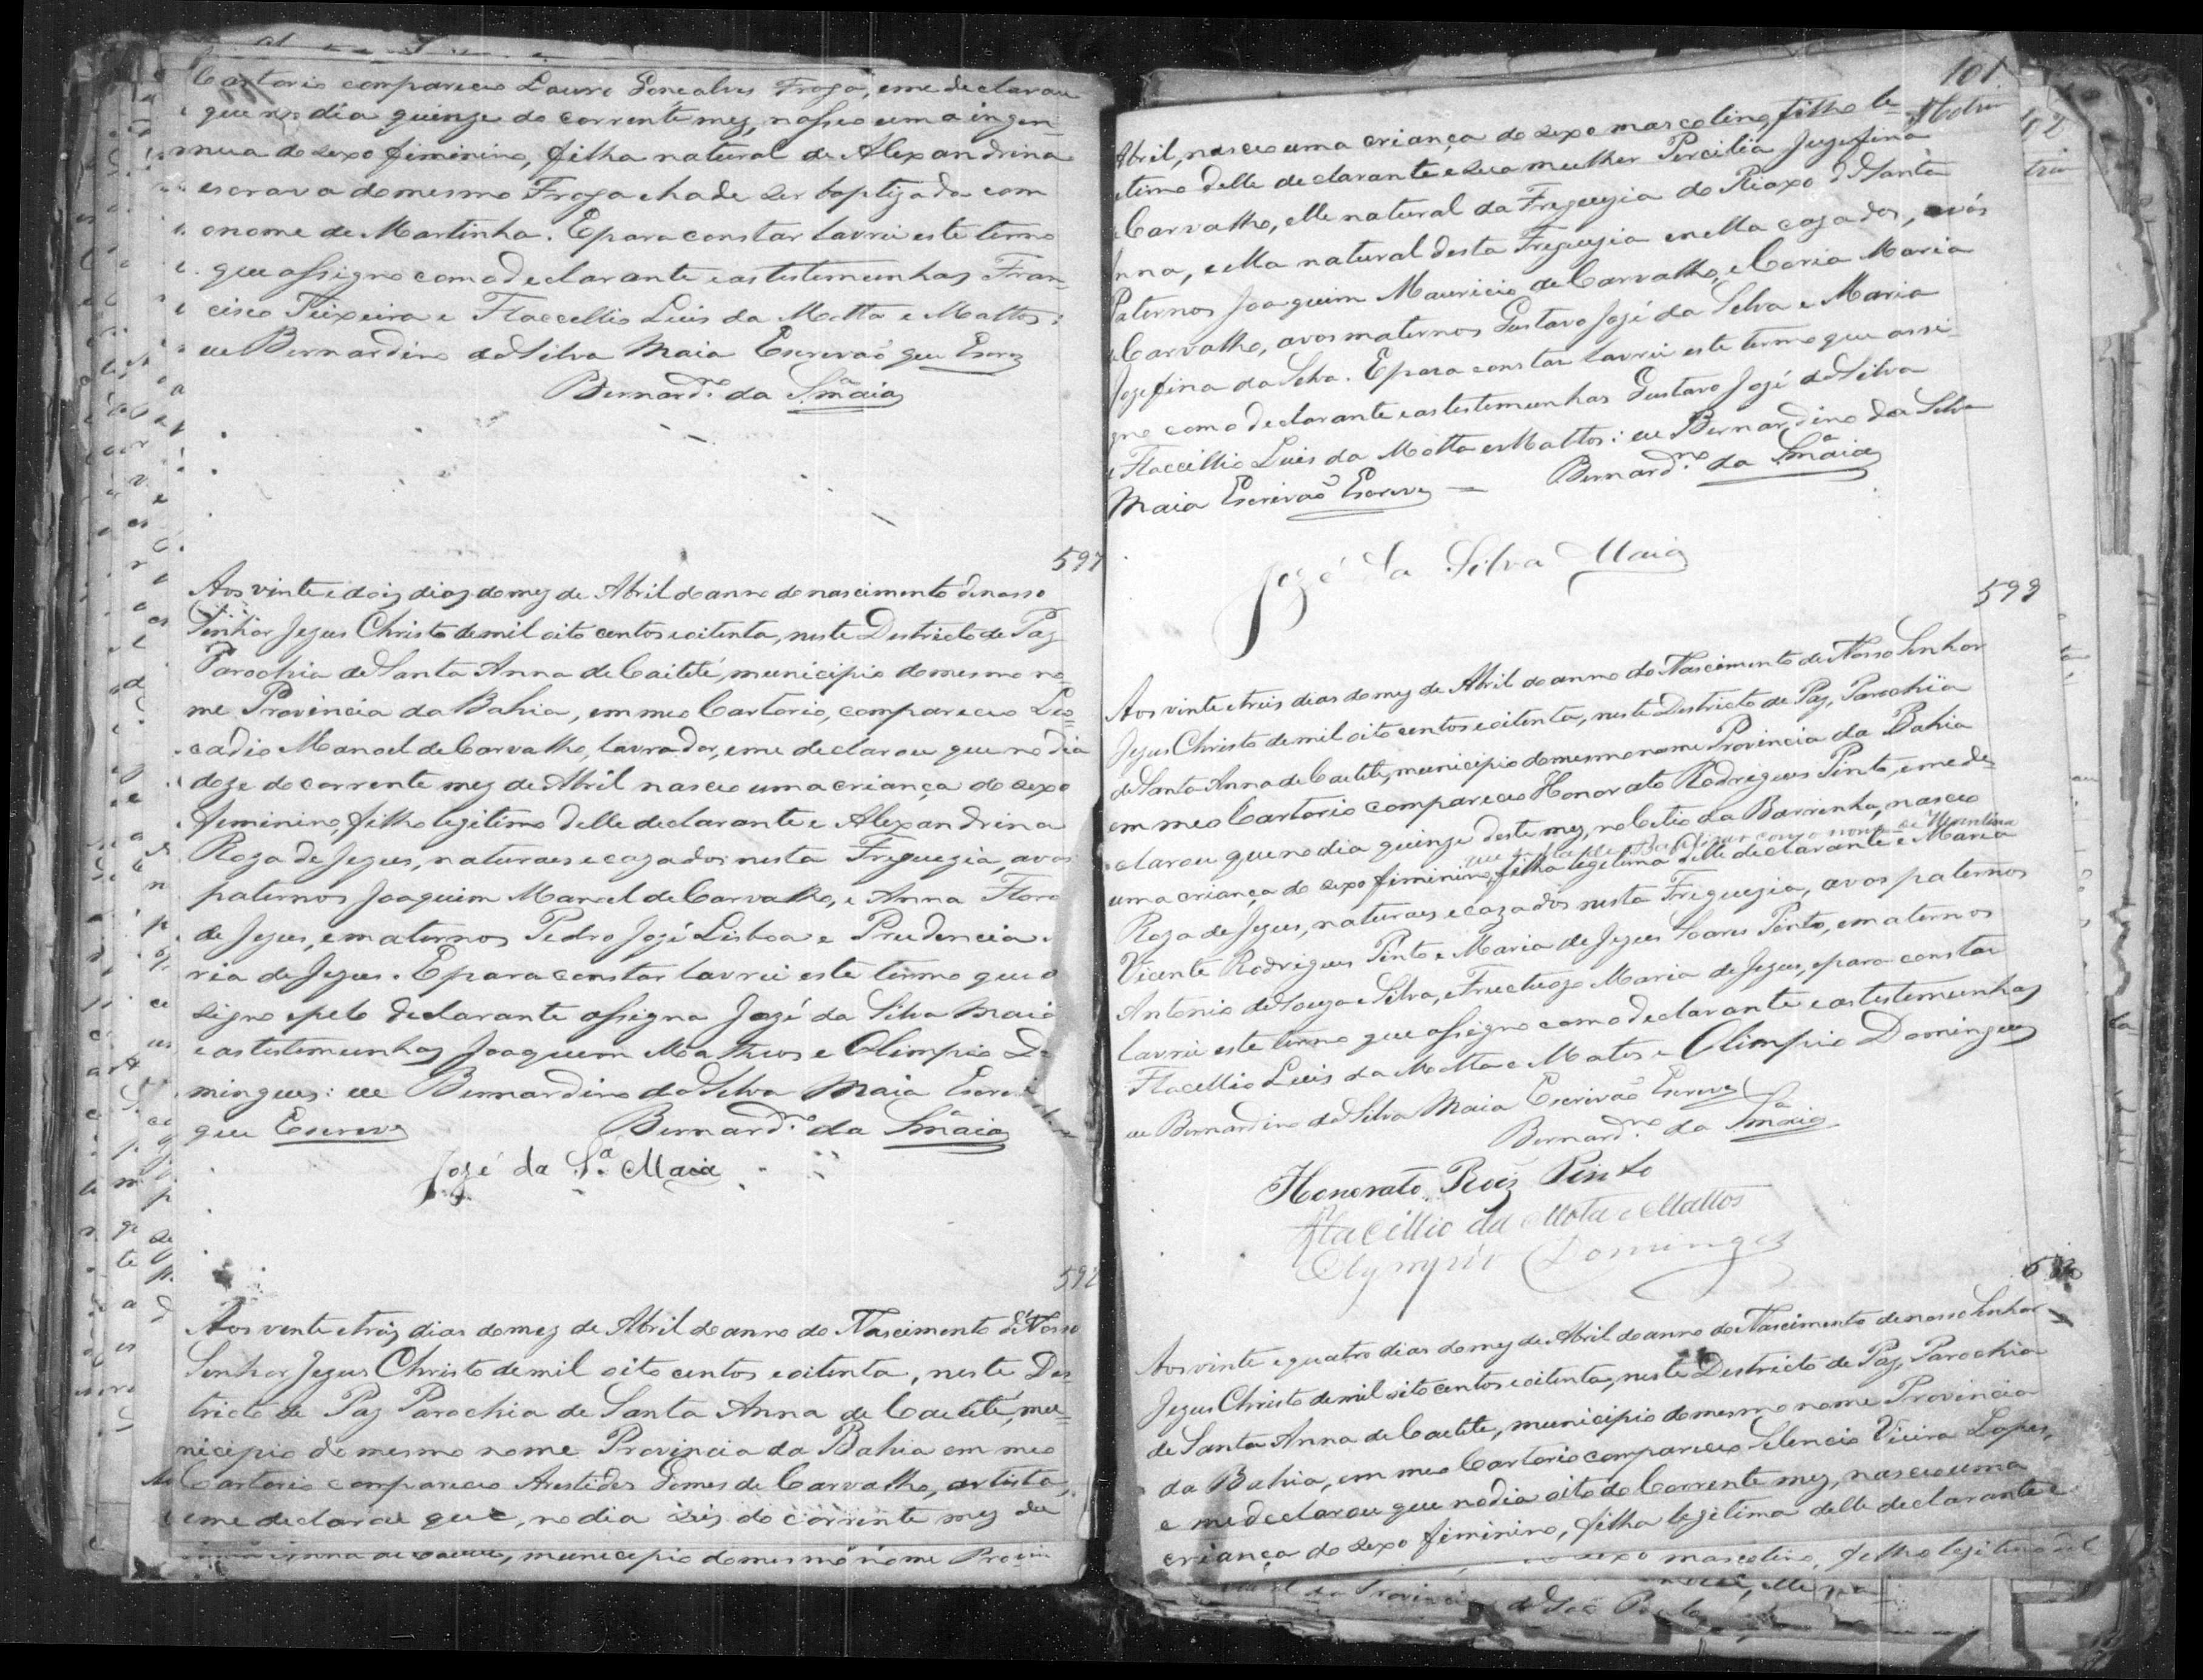 Cartorio compareceo Lauro Gonçalves Fraga, e me declarou
que no dia quinze do corrente mez, nasceo uma ingen-
nua do sexo feminino, filha natural de Alexandrina
escrava do mesmo Fraga e hade ser baptizada com
o nome de Martinha. E para constar lavrei este termo
que assigno com o declarante e as testemunhas Fran-
cisco Teixeira e Flaccellio Luis da Motta e Mattos:
eu Bernardino da Silva Maia Escrivaõ que Escrevy
Bernard.no da S.a Maia
597
Aos vinte e dois dias do mez de Abril do anno do nascimento de nosso
Senhor Jezus Christo de mil oito centos e oitenta, neste Destricto de Paz
Parochia de Santa Anna de Caiteté, municipio do mesmo no-
me Provincia da Bahia, em meo Cartorio, compareceo Leo=
cadio Manoel de Carvalho, lavrador, e me declarou que no dia
doze do corrente mez de Abril nasceo uma criança do sexo
feminino, filha legitima delle declarante e Alexandrina
Roza de Jezus, naturaes e cazados nesta Freguezia, avos
paternos Joaquim Manoel de Carvalho, e Anna Flora
de Jezus, e maternos Pedro Jozé Lisboa e Prudencia
ria de Jezus. E para constar lavrei este termo que a
signo e pelo declarante assigna Jozé da Silva Maia
e as testemunhas Joaquim Matheos e Olimpio Do
mingues: eu Bernardino da Silva Maia Escri
que Escrevy Bernard.no da S.a Maia
Jozé da S.a Maia
592
Aos vente e tres dias do mez de Abril do anno do Nascimento de Nosso
Senhor Jezus Christo de mil oito centos e oitenta, neste Des=
tricto de Paz Parochia de Santa Anna de Caeteté, mu=
nicipio do mesmo nome Provincia da Bahia em meo
Cartorio compareceo Arestides Gomes de Carvalho, artista,
e me declarou que, no dia seis do corrente mez de
municipio do mesmo nome Provin
101
Abril, nasceo uma criança do sexo mascolino, filho le-
etimo delle declarante e sua mulher Percilia Juzefina
Carvalho, elle natural da Freguezia do Riaxo de Santa
nna, e ella natural desta Freguezia e nella cazados, avós
Paternos Joaquim Mauricio de Carvalho, e Caria Maria
Carvalho, avos maternos Gustavo Jozé da Selva e Maria
Jozefina da Selva. E para constar lavrei este termo que assi-
gno com o declarante e as testemunhas Gustavo Jozé da Silva
e Flaccillio Luis da Motta e Mattos: eu Bernardino da Selva
Maia Escrivaõ Escrevy — Bernard.no da S.a Maia
Jozé da Silva Maia
599
Aos vinte e treis dias do mez de Abril do anno do Nascimento de Nosso Senhor
Jezus Christo de mil oito centos e oitenta, neste Destricto de Paz, Parochia
de Santa Anna de Caetete, municipio do mesmo nome Provincia da Bahia
em meo Cartorio compareceo Honorato Rodrigues Pinto, e me de-
clarou que no dia quinze deste mez, no Cetio da Barrinha, nasceo
uma criança do sexo feminino, filha legetima delle declarante e Maria
Roza de Jezus, naturaes e cazados nesta Freguezia, avos paternos
Vicente Rodrigues Pinto e Maria de Jezus Soares Pinto, e maternos
Antonio de Souza e Silva, e Fructuoza Maria de Jezus, e para constar
lavrei este termo que assigno com o declarante e as testemunhas
Flacellio Luis da Motta e Matos e Olimpio Domingues
eu Bernardino da Silva Maia Escrivaõ Escrevy
Bernard.no da S.a Maia
Honorato Roiz Pinto
Flacillio da Mota e Mattos
Olympio Domingez
Aos vinte e quatro dias do mez de Abril do anno do Nascimento de nosso Senhor
Jezus Christo de mil oito centos e oitenta, neste Destricto de Paz, Parochia
de Santa Anna de Caetete, municipio do mesmo nome Provincia
da Bahia, em meo Cartorio compareceo Selencio Vieira Lopes,
e me declarou que no dia oito do Corrente mez, nasceo uma
criança do sexo feminino, filha legitima delle declarante e
sexo mascolino, filho legitimo